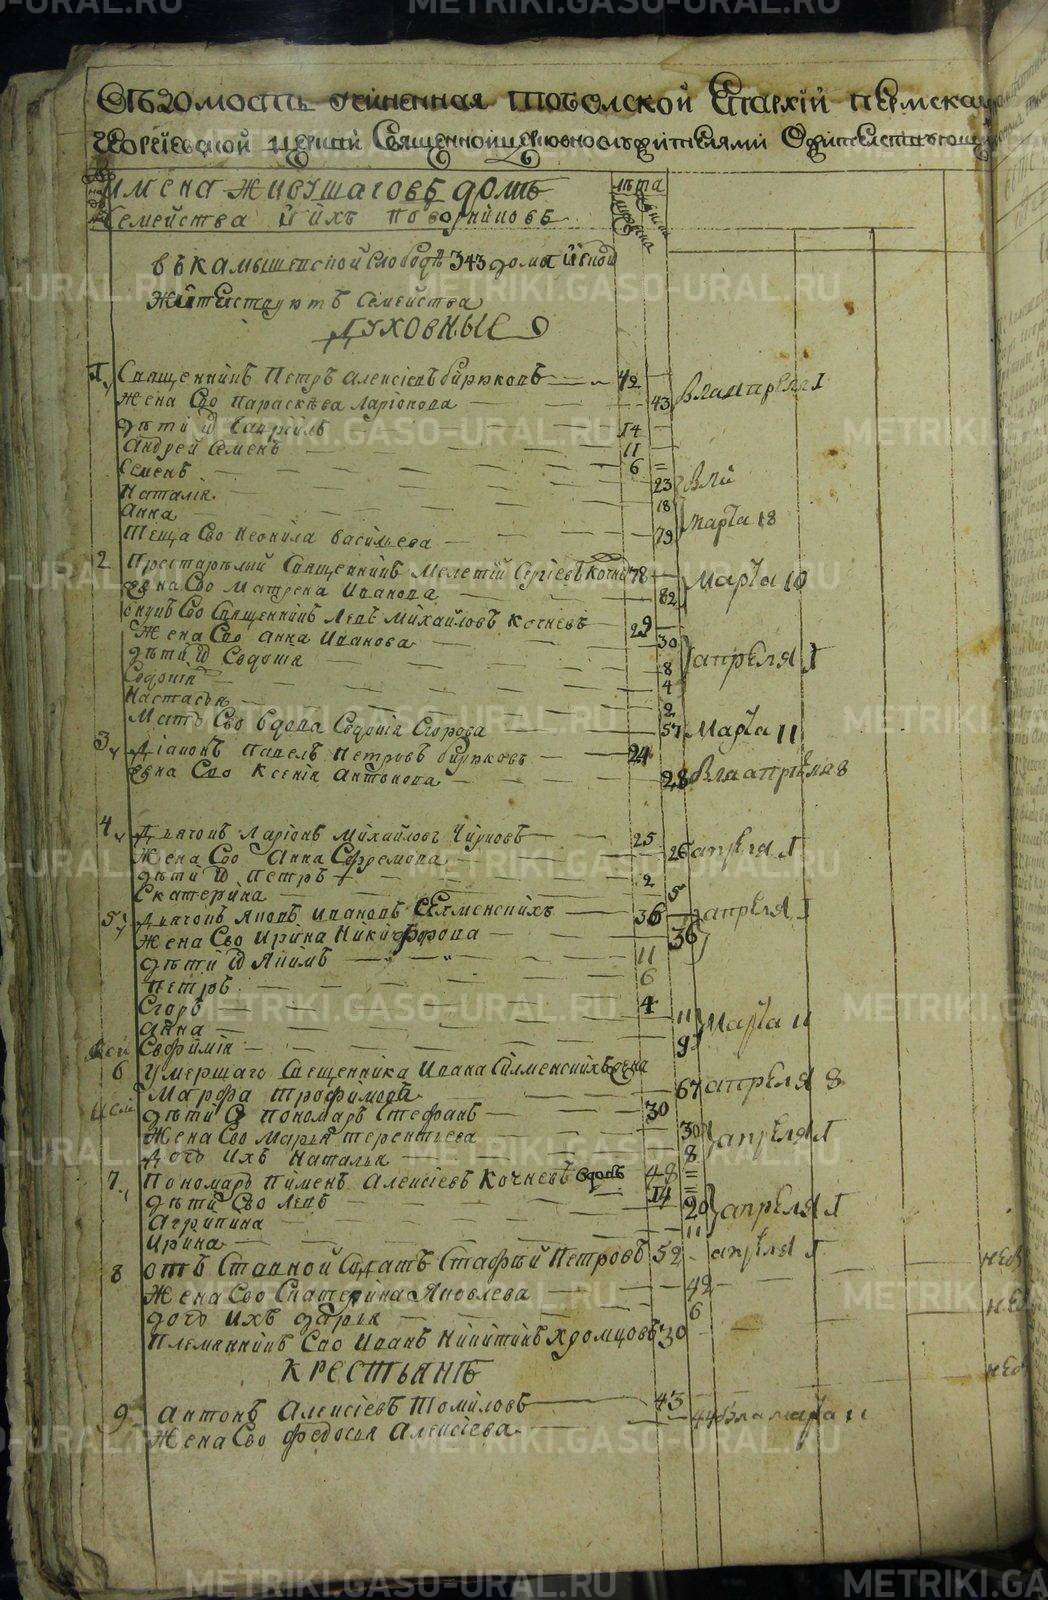 METRIKI.GASO-URAL.RU
Вѣдомость Тоболской Епархїй Пермска
Георгїевской церкви Священноицерковнослужителями
имена живущаговъ домъ лѣта
семейства ийхъ
въ камышевской слободѣ 343 дома
жителствуютъ семейства
духовные
1 Священникъ Петръ алексіевъ бирюковъ 42
Жена Ево параскѣва ларіонова 43 апреля 1
дѣти их Гаврилъ 14
Андрей 11
Семенъ 6
Наталія 23
Анна 18 марта 18
Теща Ево Неонила василъева 79
2 Престарѣлый Священникъ Мелетій Сергіевъ Кочневъ 78 марта 10
жена Ево Матрена иванова 82
внукъ Ево Священникъ Левъ михайловъ Кочневъ 29
Жена Ево анна иванова 30 апреля 1
дѣти их Федотія 8
Софиія 4
Настасья 2
Мать Ево вдова Софиія Егорова 57 марта 11
3 діаконъ павелъ петровъ бирюковъ 24
жена Ево Ксенія антонова 28 апреля 8
4 дьячокъ ларіонъ михайловъ 25
жена Ево Анна Ефремова 26 апреля 1
дѣти их петръ 2
Екатерина 5
5 дьячокъ яковъ ивановъ Селменскихъ 36 апреля 1
жена Ево Ирина Никифорова 36
дѣти их Якимъ 11
петръ 6
Егоръ 4
анна 11 марта 11
Евфимія 9
6 умершаго Священника ивана Силменскихъ жена
Марфа Трофимова 67 апреля 8
дѣти Ея пономарь Стефанъ 30
жена Ево марья терентьева 30 апреля 1
дочь ихъ Наталья 8
7 пономарь пименъ алексіевъ Кочневъ вдовъ 48
дѣти Ево левъ 14
агрипина 20 апреля 1
ирина 11
8 отъ Ставной Солдатъ Стафѣй петровъ 52 апреля 1
жена Ево Екатерина яковлева 42
дочь ихъ дарья 6
племянникъ Ево иванъ никитинъ хромцовъ 30
крестьянѣ
9 антонъ алексіевъ Томиловъ 43
жена Ево федосья алексіева 44 марта 11